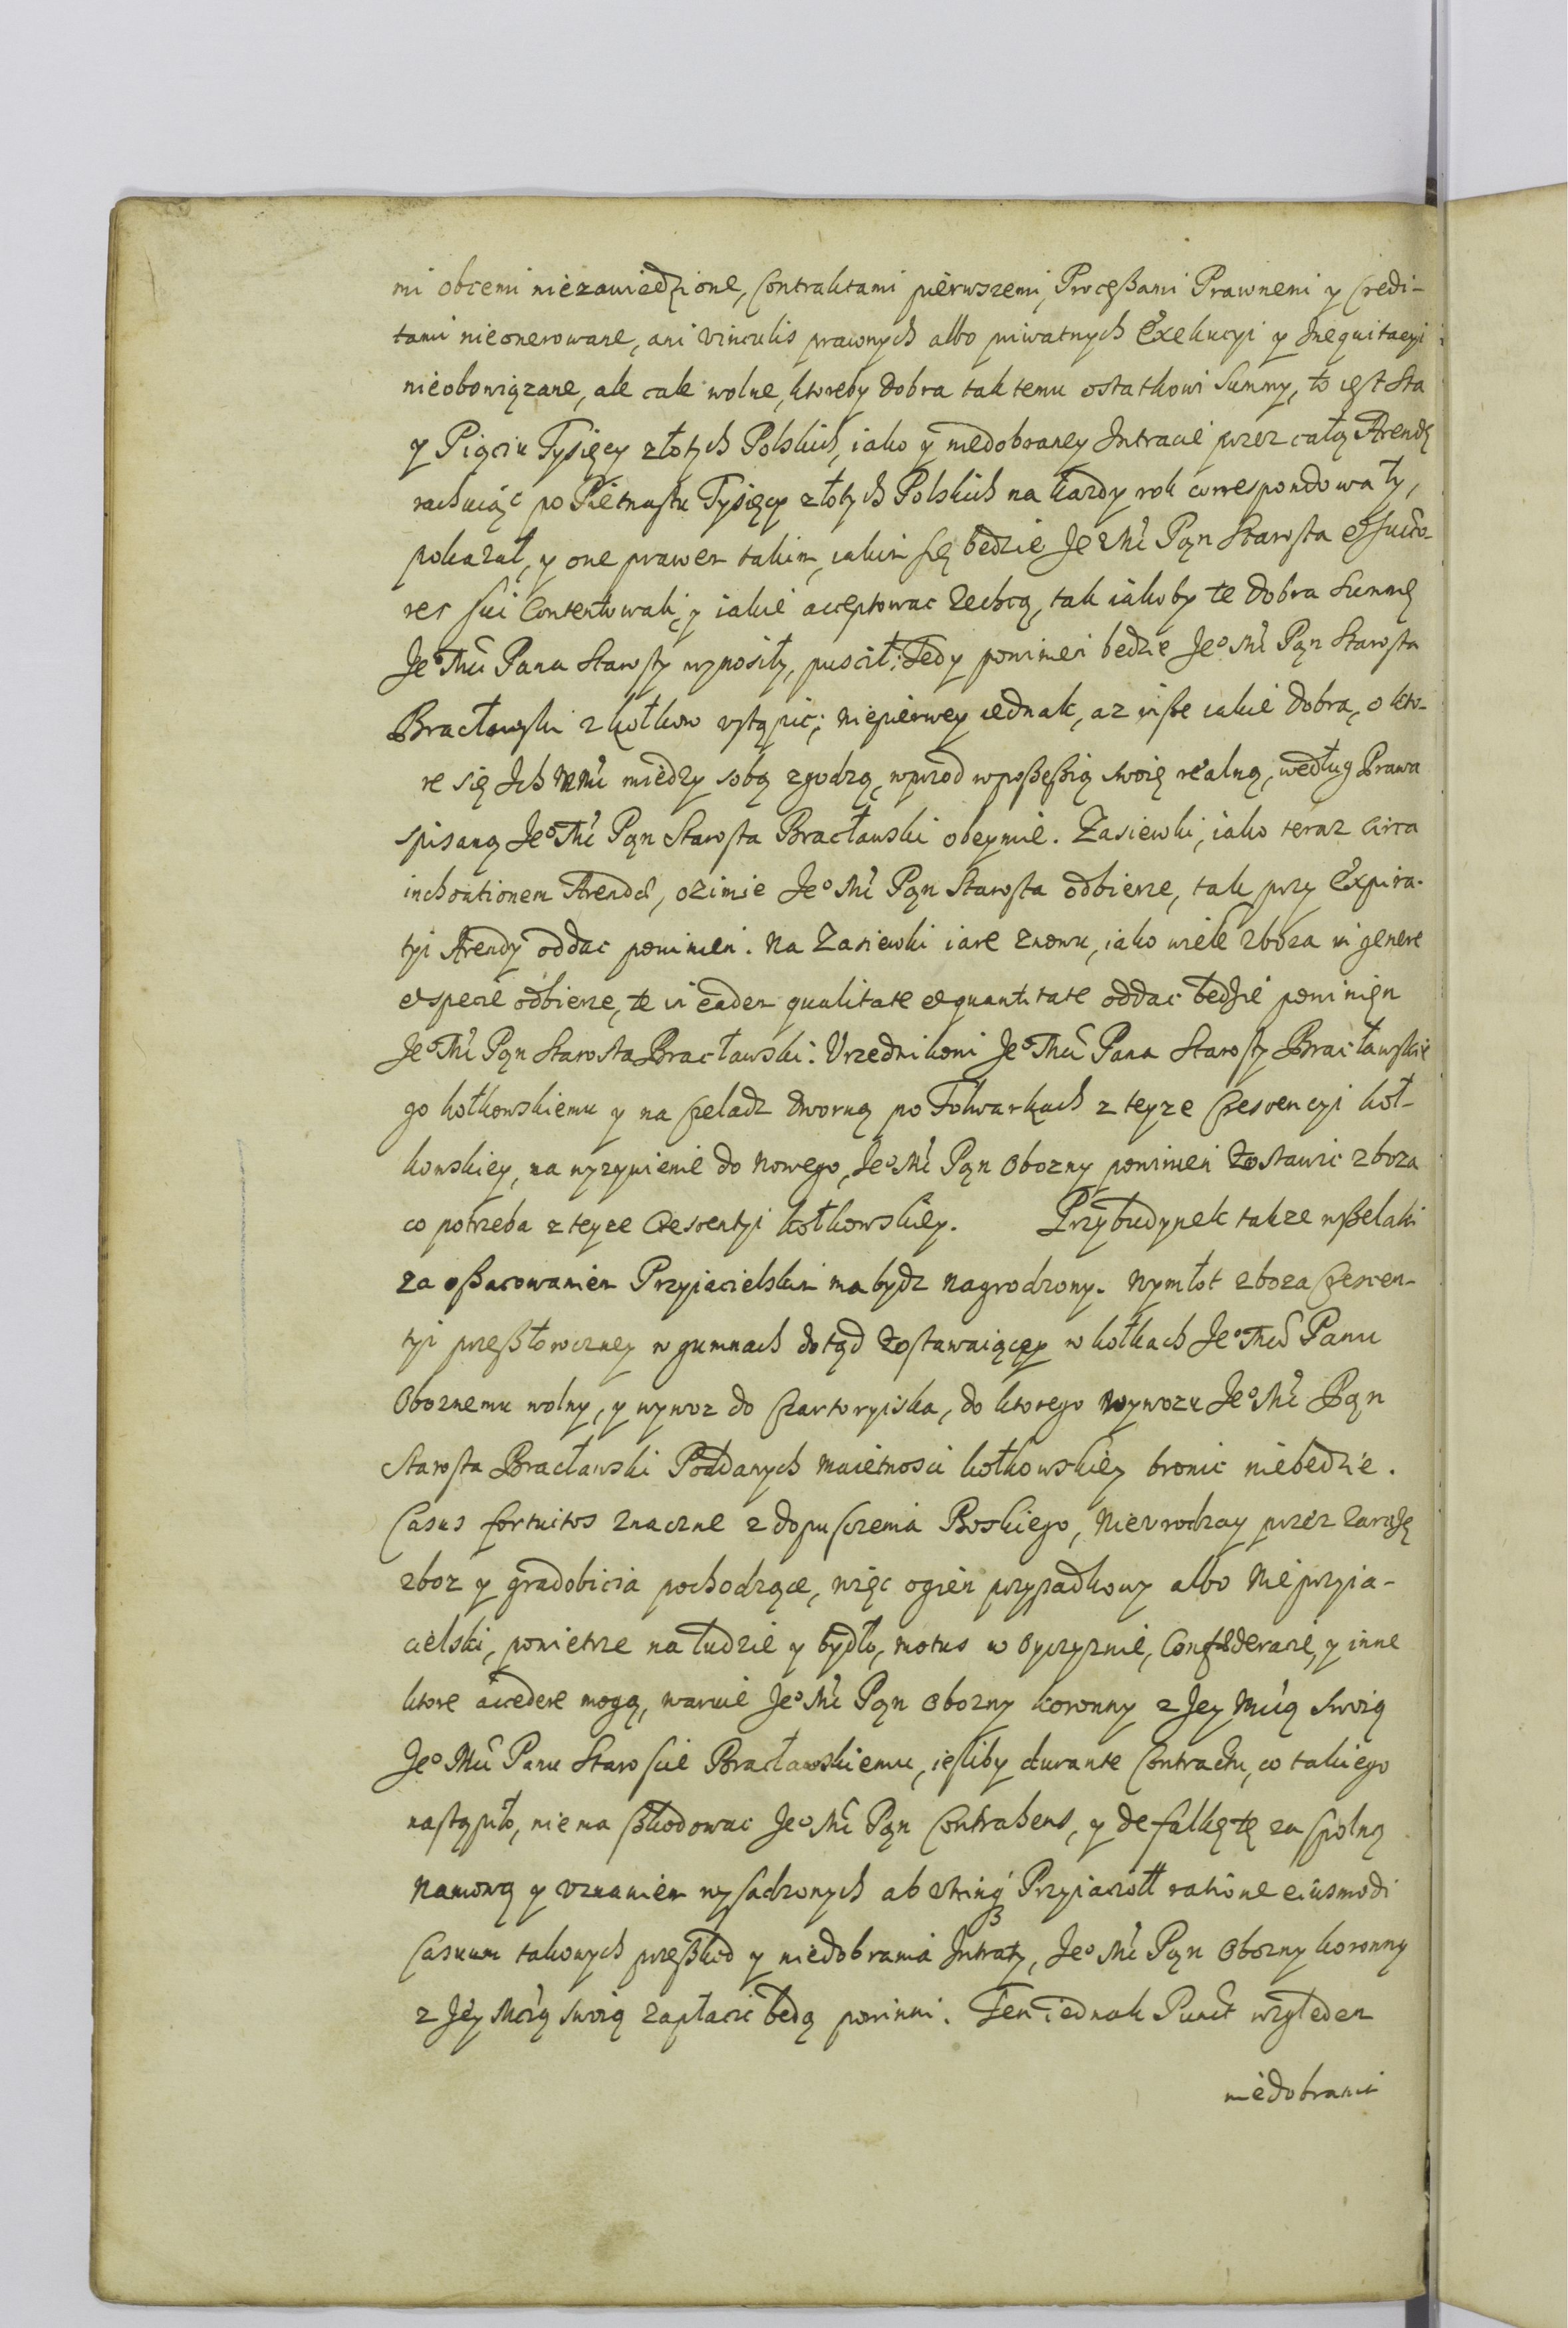 mi obcemi niezawiedzione, Contraktami pierwszemi, Processami Prawnemi y Credi-
tami nieonerowane, ani vinculis prawnych albo priwatnych Exekucyi y Inequitacyi
nieobowiązane, ale cale wolne, ktoreby dobra tak temu ostatkowi Summy, to iest Sta
y Piąciu Tysięcy złotych Polskich, iako y niedobraney Intracie przez całą Arendę
rachuiąc po Piętnastu Tysięcy złotych Polskich na każdy rok correspondowały,
pokazał, y one prawem takim, iakim się będzie Jeo Mć Pan Starosta et succo-
res sui Contentowali, y iakie acceptowac zechcą, tak iakoby te dobra Summę
Jeo Mći Pana Starosty wynosiły, puscił; Tedy powinien będzie Jeo Mć Pąn Starosta
Bracławski z kołkow vstąpic; niepierwey iednak, az insze iakie dobra, o kto-
re się Ich Mći między sobą zgodzą, wprzod w possessią swoię realną, według Prawa
spisaną Jeo Mć Pąn Starosta Bracławski obeymie. Zasiewki, iako teraz circa
inchoationem Arendæ, ozimie Jeo Mć Pąn Starosta odbierze, tak przy Expira-
tyi Arendy oddac powinien. Na Zasiewki iare znowu, iako wiele zboza in genere
et specie odbierze, te in eadem qualitate et quantitate oddac będzie powinięn
Jeo Mć Pąn Starosta Bracławski. Vrzednikowi Jeo Mći Pana Starosty Bracławskie
go kołkowskiemu y na Czeladz dworną po Folwarkach z teyze Crescencyi koł-
kowskiey, na wyzywienie do nowego, Jeo Mć Pąn Obozny powinien zostawic zboza
co potrzeba z teyze Crescentyi kołkowskiey. Przybudynek takze wszelaki
za oszacowaniem Przyiacielskim ma bydz nagrodzony. Wymłot zboza Crescen-
tyi przeszłoroczney w gumnach dotąd zostawaiącey w kołkach Jeo Mći Panu
Oboznemu wolny, y wywoz do Czartoryiska, do ktorego wywozu Jeo Mć Pąn
Starosta Bracławski Poddanych maiętnosci kołkowskiey bronic niebędzie.
Casus fortuitos znaczne z dopuszczenia Boskiego, Nieurodzay przez zarazę
zboz y gradobicia pochodzące, więc ogień przypadkowy albo Nieprzyia-
cielski, powietrze na ludzie y bydło, motus w Oyczyznie, Confœderacie, y inne
ktore accedere mogą, waruie Jeo Mć Pąn Obozny koronny z Jey Mćią swoią
Jeo Mći Panu Staroscie Bracławskiemu, iesliby durante Contractu, co takiego
nastąpiło, nie ma szkodowac Jeo Mć Pąn Contrahens, y defalkętę za spolną
Namową y vznaniem wysadzonych ab utrinq Przyiacioł ratione eiusmodi
Casuum takowych przeszkod y niedobrania Intraty, Jeo Mć Pąn Obozny koronny
z Jey Mćią swoią zapłacic będą powinni. Ten iednak Punct względem
niedobrania